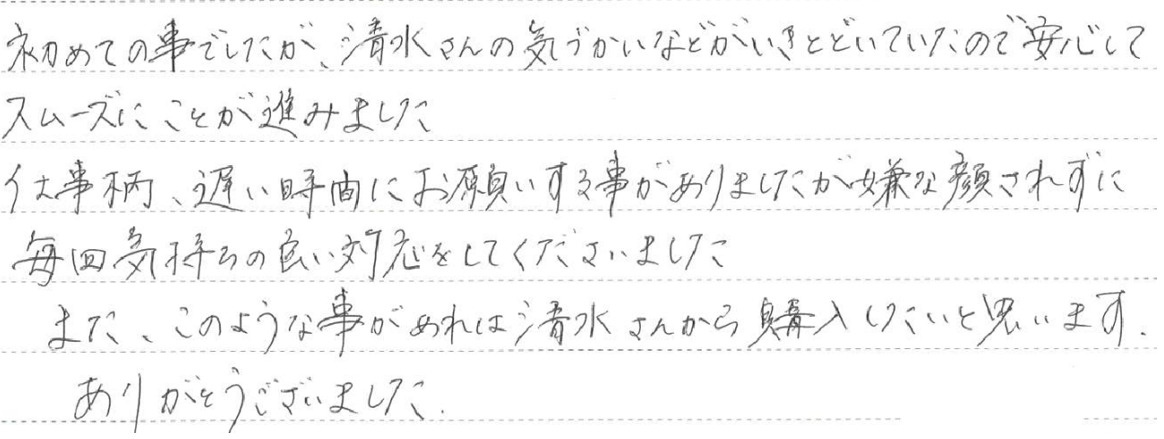 初めての事でしたが、清水さんの気づかいなどがいきとどいていたので安心して
スムーズにことが進みました
仕事柄、遅い時間にお願いする事がありましたが嫌な顔されずに
毎回気持ちの良い対応をしてくださいました
また、このような事があれは清水さんから購入したいと思います.
ありがとうございました.